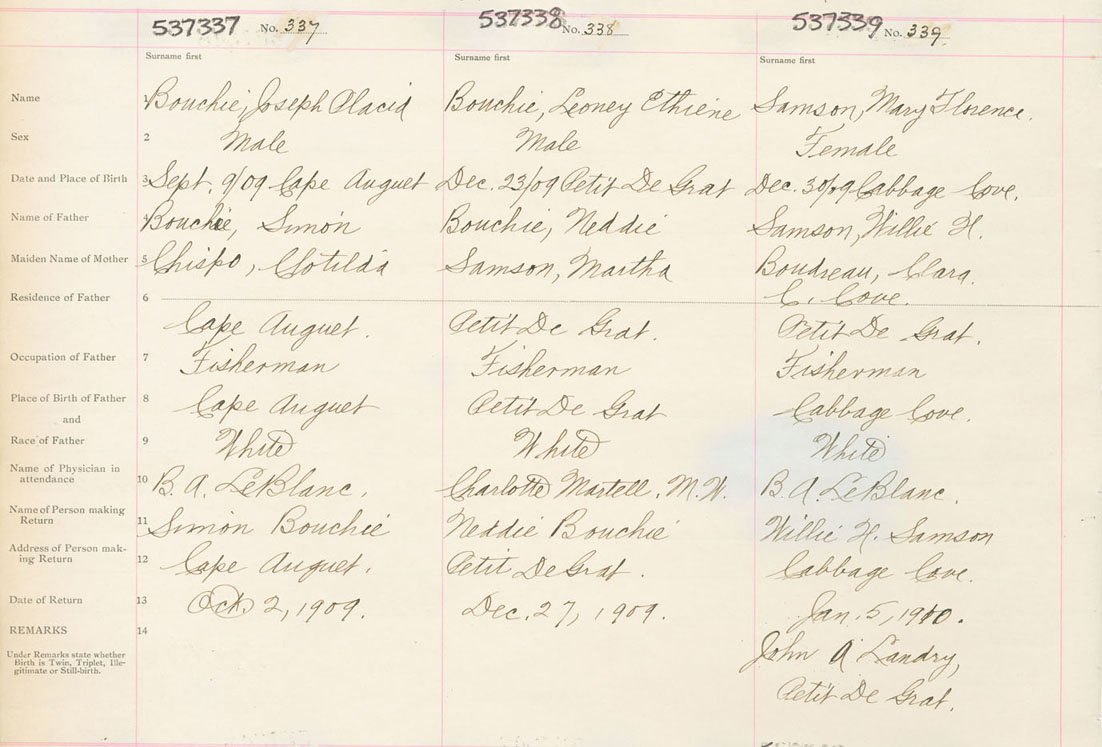 537337 No. 337 537338 No. 338 537339 No. 339
Surname first Surname first Surname first
Name 1 Bouchie, Joseph Placid Bouchie, Leoney Ethiene Samson, Mary Florence.
Sex 2 Male Male Female
Date and Place of Birth 3 Sept. 9/09 Cape Auguet Dec. 23/09 Petit De Grat Dec. 30/09 Cabbage Cove.
Name of Father 4 Bouchie, Simon Bouchie, Neddie Samson, Willie H.
Maiden Name of Mother 5 Chispo, Clotilda Samson, Martha Boudreau, Clara.
Residence of Father 6 C. Cove.
Cape Auguet. Petit De Grat. Petit De Grat.
Occupation of Father 7 Fisherman Fisherman Fisherman
Place of Birth of Father 8 Cape Auguet Petit De Grat Cabbage Cove.
and
Race of Father 9 White White White
Name of Physician in
attendance 10 B. A. LeBlanc. Charlotte Martell, M.W. B. A. LeBlanc.
Name of Person making
Return 11 Simon Bouchie Neddie Bouchie Willie H. Samson
Address of Person mak-
ing Return 12 Cape Auguet. Petit De Grat. Cabbage Cove.
Date of Return 13 Oct. 2, 1909. Dec. 27, 1909. Jan. 5, 1910.
REMARKS 14
Under Remarks state whether
Birth is Twin, Triplet, Ille-
gitimate or Still-birth.
John A Landry,
Petit De Grat.